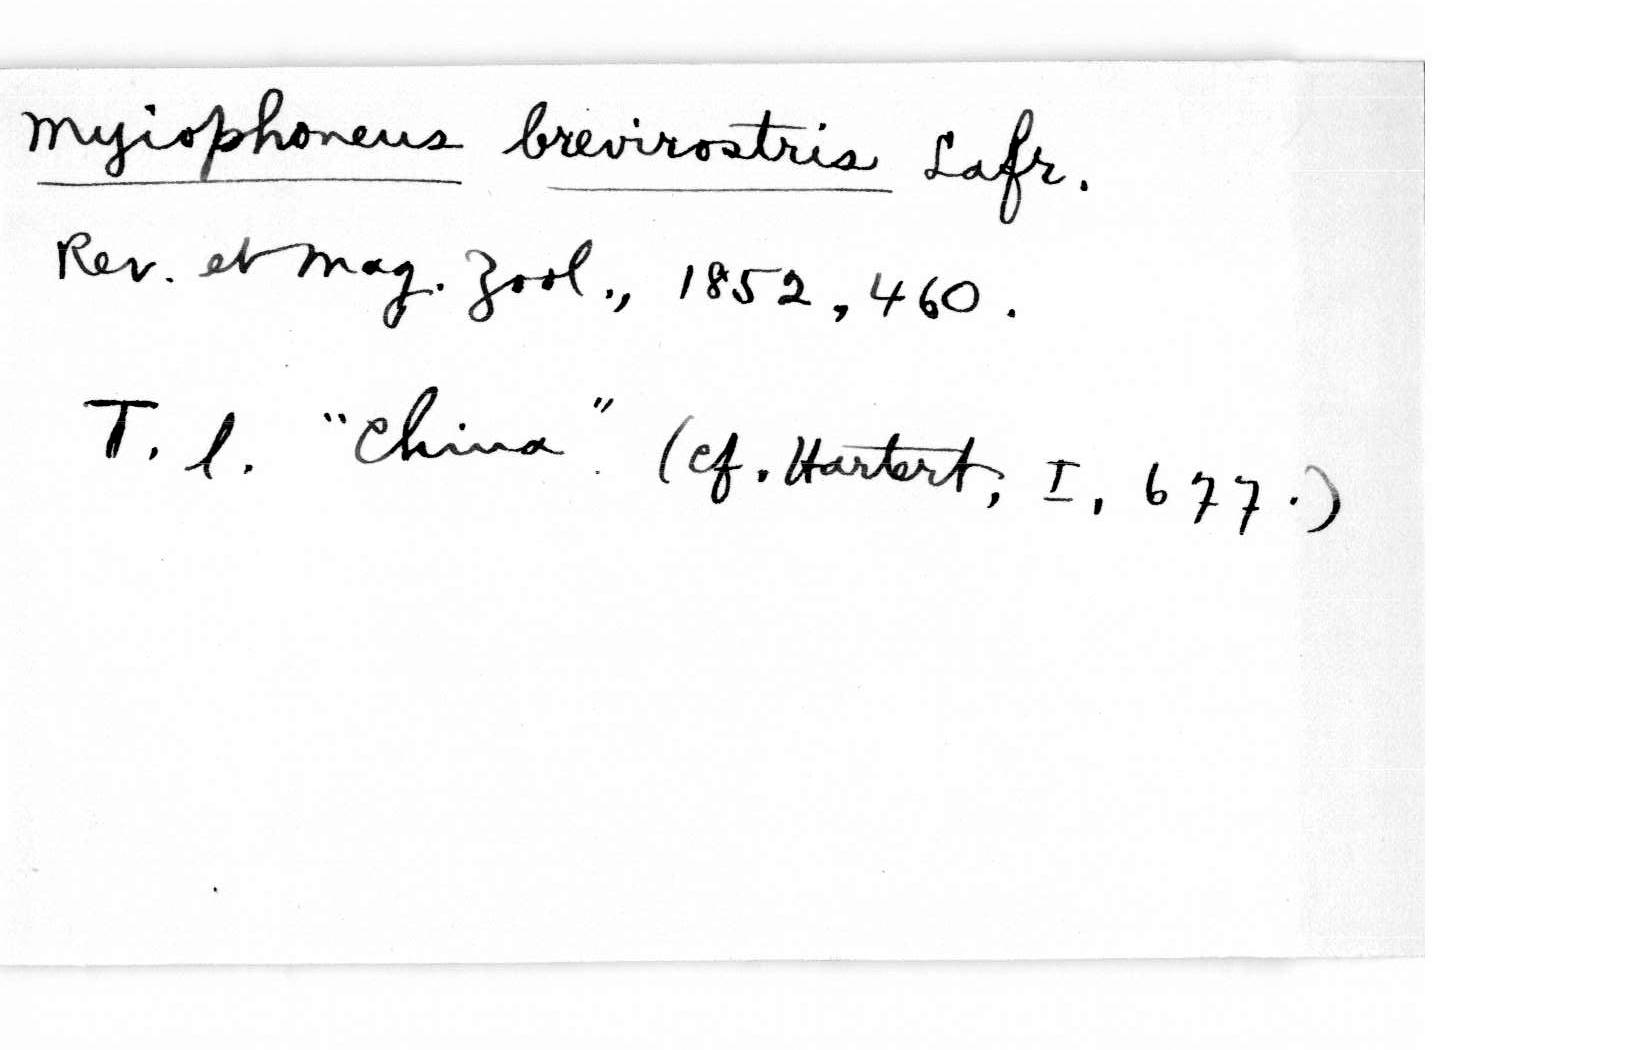 Myiophoneus brevirostris Lafr.
Rev. et Mag. Zool., 1852, 460.
T. l. "China". (cf. Hartert, I, 677.)